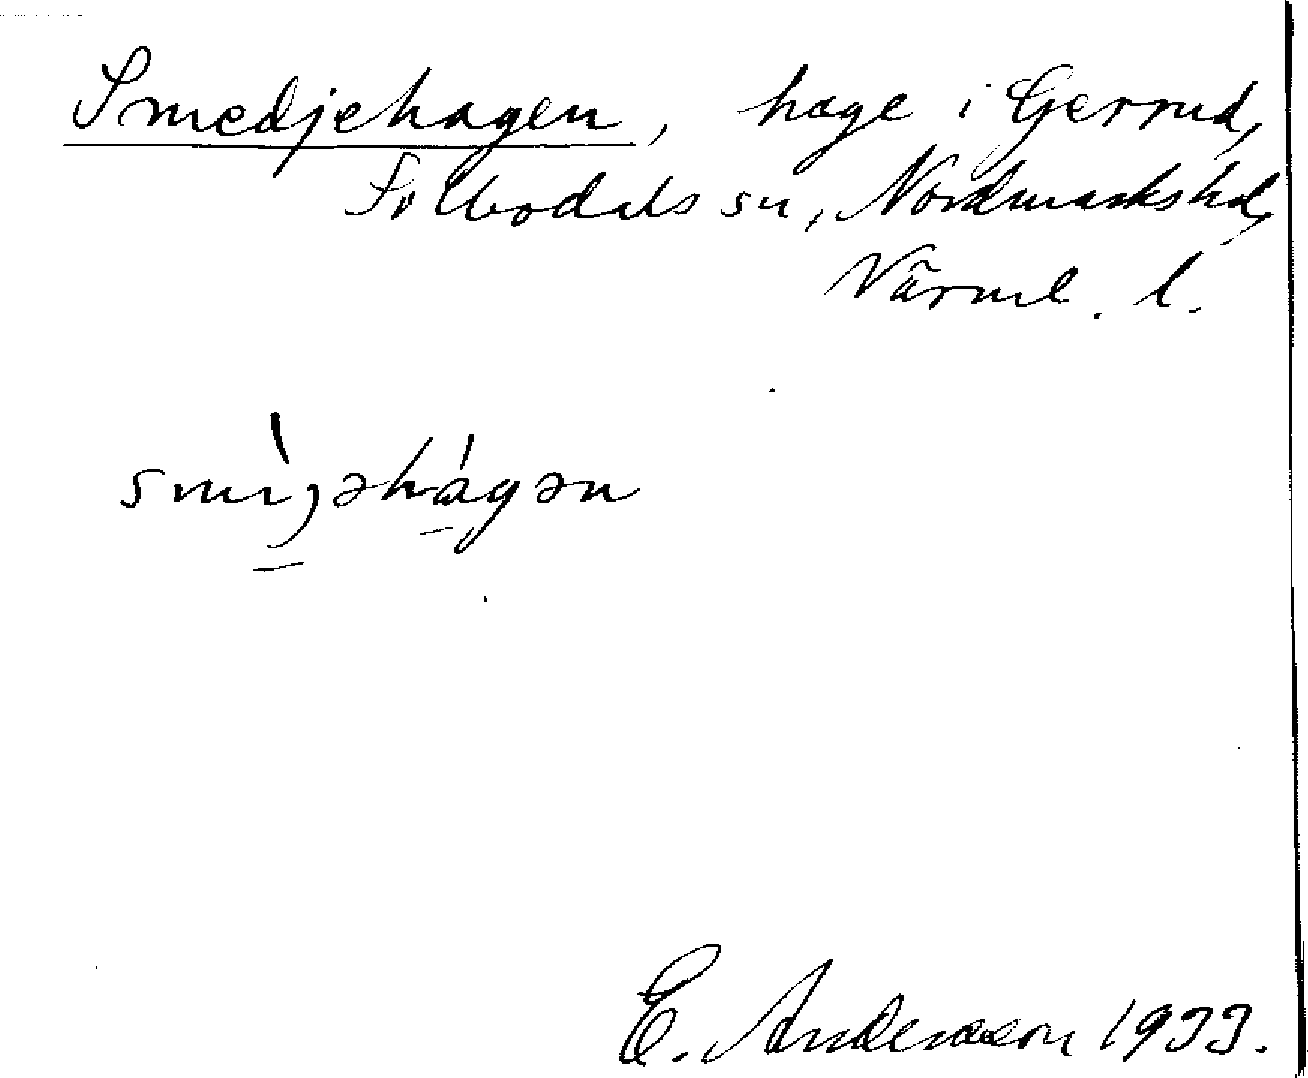 Smedjehagen, hage i Gerrud,
Silbodals sn, Nordmarkshd,
Värml. l.
smìȷəhágən
E. Andersson 1933.